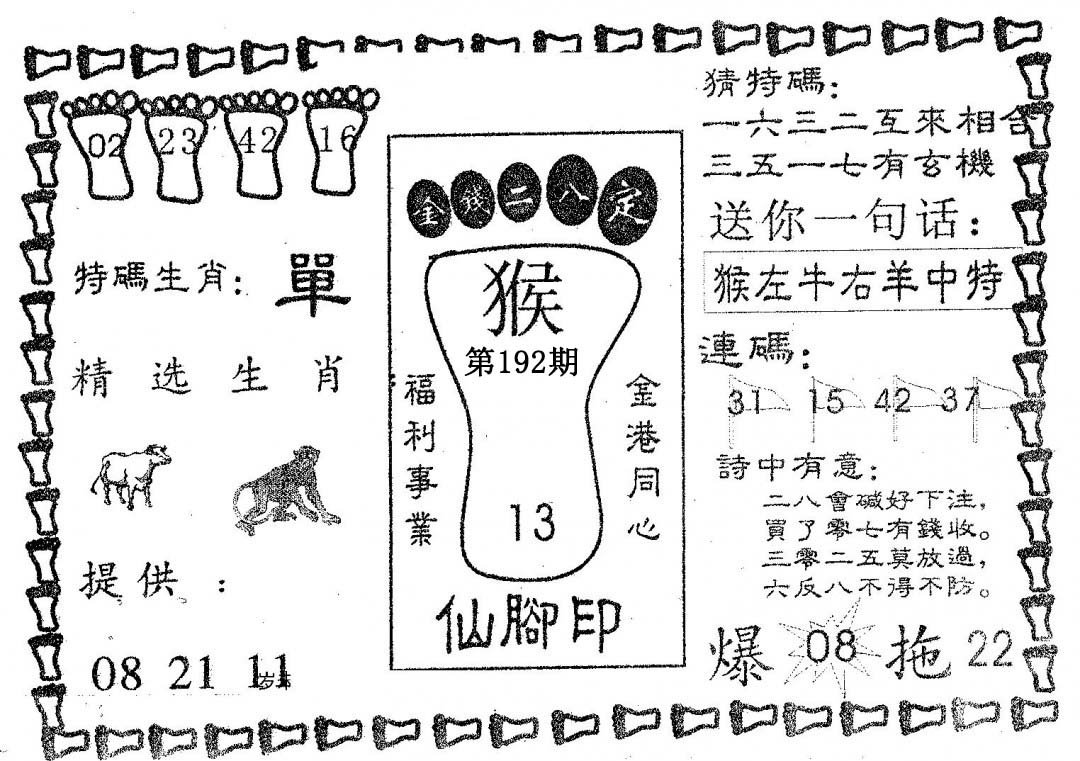 02 23 42 16
特碼生肖：單
精选生肖
提供：
08 21 11
金錢二八定
猴
第192期
13
福利事業
金港同心
仙腳印
猜特碼：
一六三二互來相合
三五一七有玄機
送你一句话：
猴左牛右羊中特
連碼：
31 15 42 37
詩中有意：
二八會碱好下注，
買了零七有錢收。
三零二五莫放過，
六反八不得不防。
爆 08 拖 22